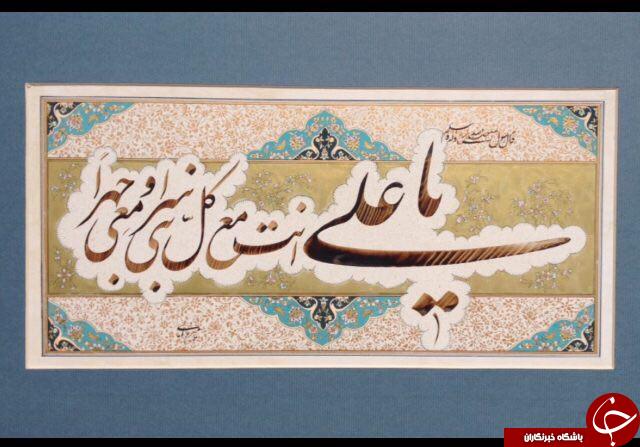 قال رسول الله صلی الله علیه و آله و سلم
یا علی انت مع کل نبی سرا و معی جهراً
باشگاه خبرنگاران